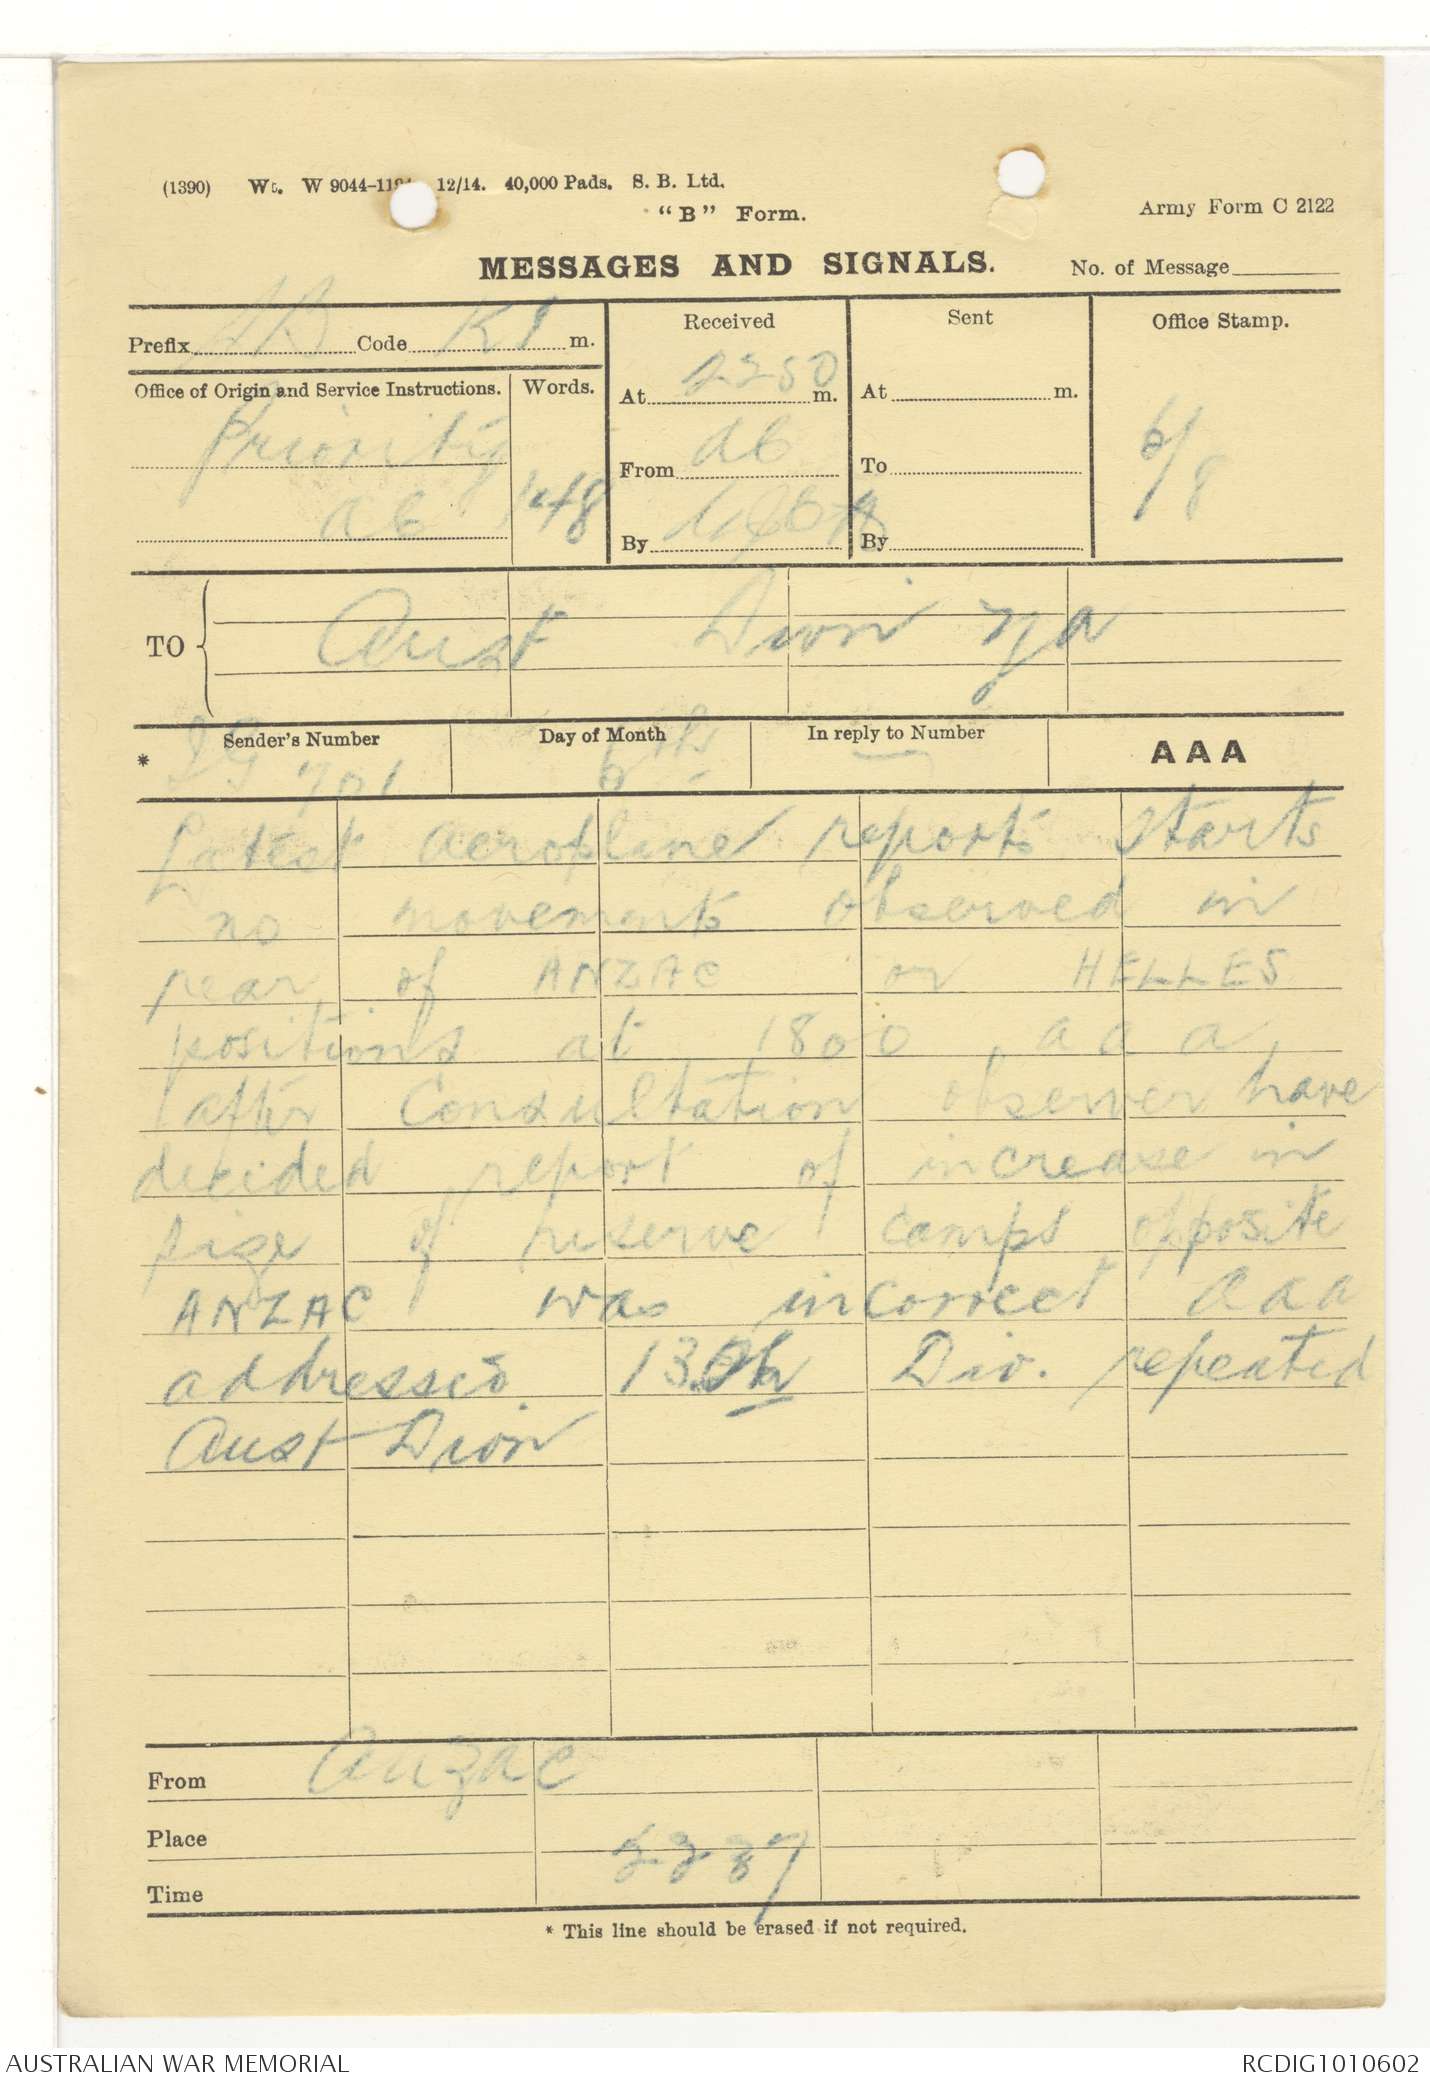 (1390) Wt. W 9044-11 12/14. 40,000 Pads. S. B. Ltd.
"B" Form.
Army Form C 2122
MESSAGES AND SIGNALS.
No. of Message
Prefix Code m.
Received
Sent
Office Stamp.
Office of Origin and Service Instructions.
Words.
At 2250 m.
At m.
Priority
From
To
6/8
48
By
By
TO
Aust Divn
Sender's Number
Day of Month
In reply to Number
AAA
* 701 6th
Latest aeroplane reports starts
no movements observed in
rear of ANZAC or HELLES
positions at 1800 aaa
after Consultation observer have
decided report of increase in
size of reserve camps opposite
ANZAC was incorrect aaa
addressed 13th Div. repeated
Aust Divn
From Anzac
Place
2237
Time
* This line should be erased if not required.
AUSTRALIAN WAR MEMORIAL
RCDIG1010602